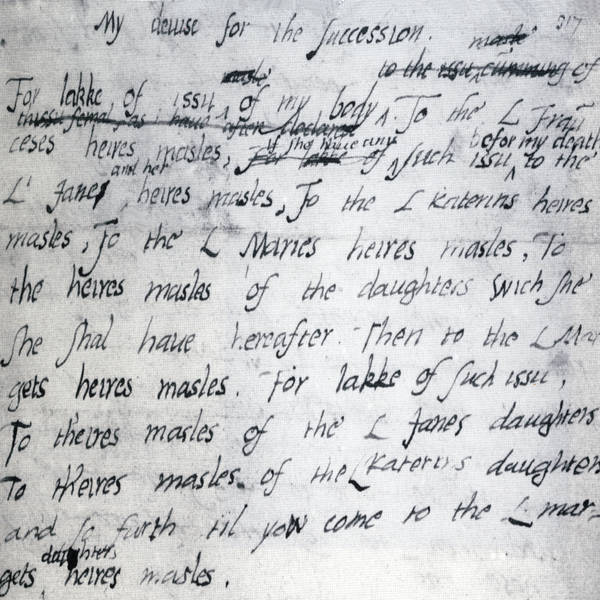 My deuise for the succession.
317
masle
masle
to the issu cumming of
For lakke of issu of my body. To the L Frau
ceses heires masles, For lakke of such issu to the
if she haue any
befor my death
and her
L' Janes heires masles, To the L Katerins heires
masles, To the L Maries heires masles, To
the heires masles of the daughters wich she
she shal haue hereafter. Then to the L Mar
gets heires masles. For lakke of such issu,
To theires masles of the L Janes daughters
To theires masles of the L Katerins daughters
and so furth til yow come to the L mar-
daughters
gets heires masles.